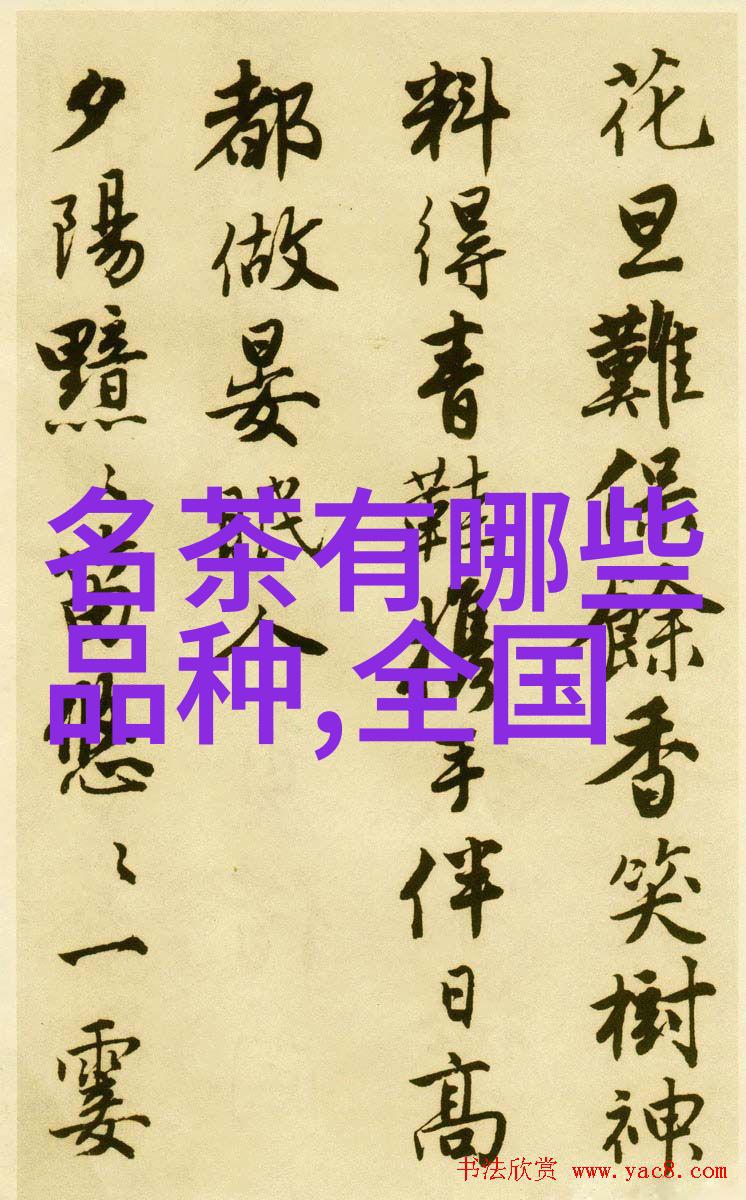 花旦難保餘香笑樹神
料得青鞋携手伴日高
都做晏眠人
夕陽黯黯
一霎
名茶有哪些
品种,全国
书法欣赏 www.yac8.com